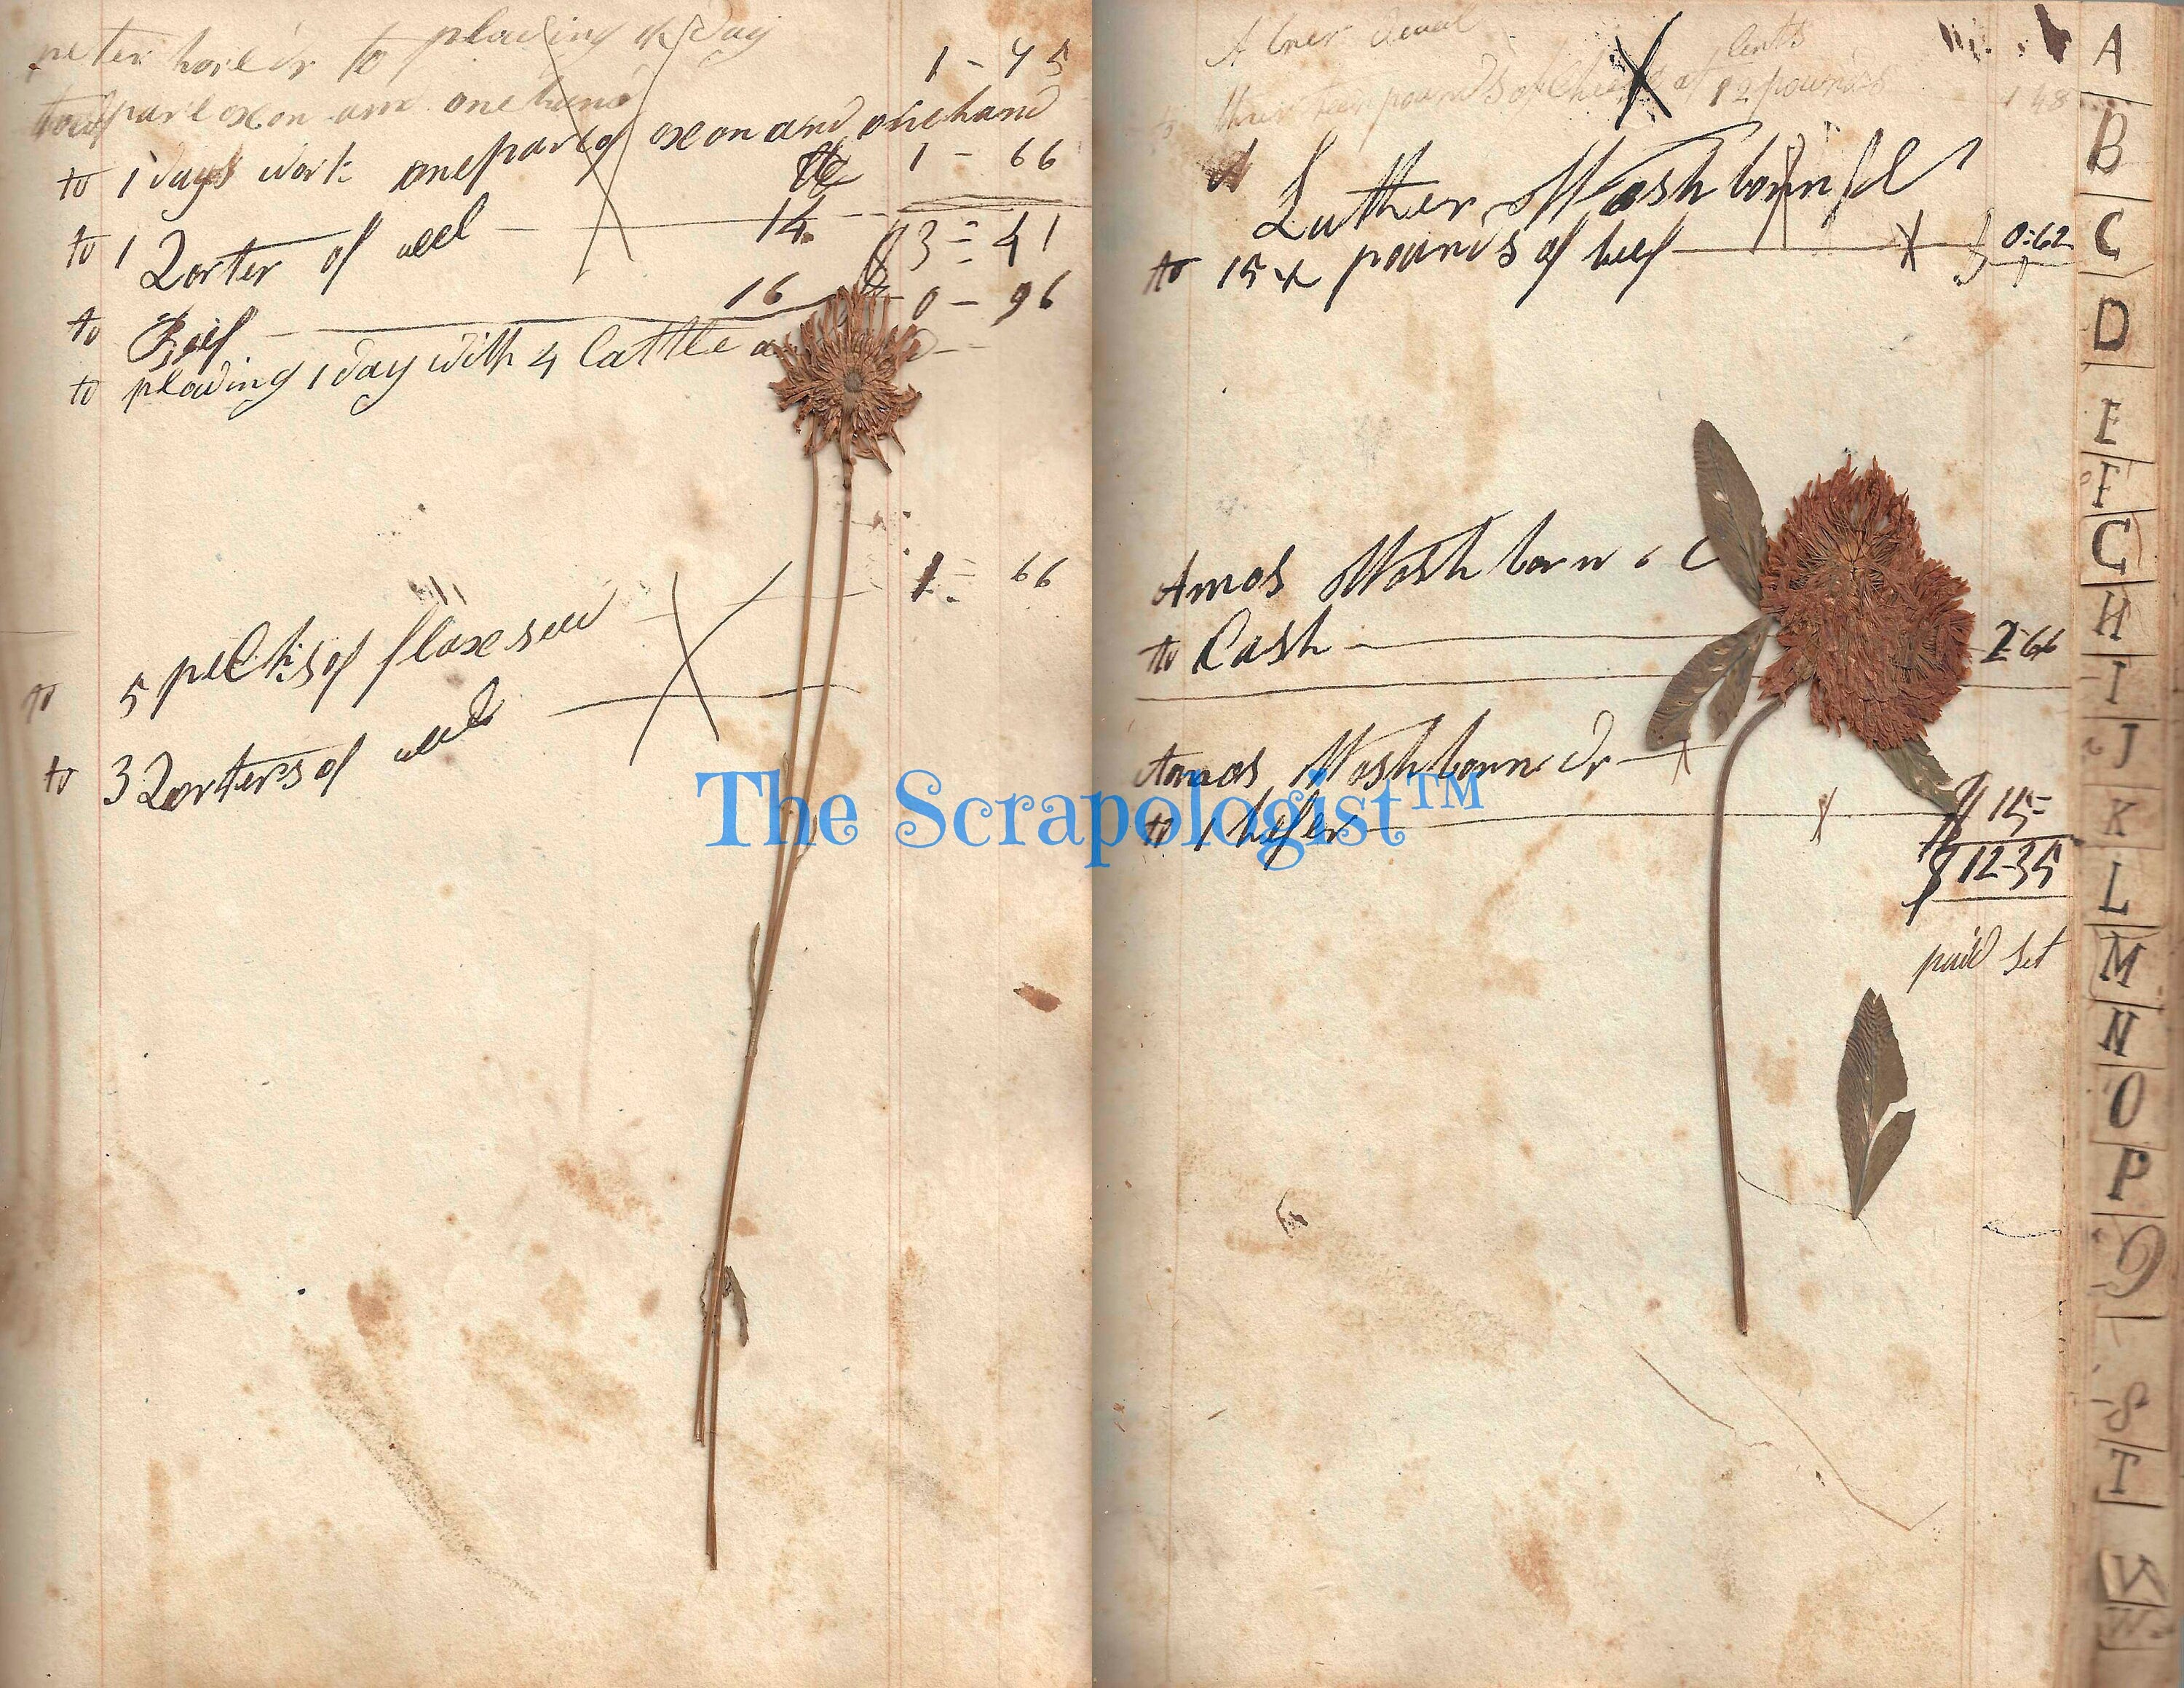 peter to plowing 1 day
1 - 75
oxon and one hand
to 1 days work one pare of oxon and one hand
1 - 66
to 1 Qorter of veel 14
$3 = 41
to Beef 16 0 - 96
to plowing 1 day with 4 Cattle
1 = 66
to 5 pecks of flaxe seed
to 3 Qorters of veel
Abner
cents
to pounds of at 12 pounds 1 48
Luther Washborn
to 15 x pounds of beef 0=62
Amos Washborn C
to Cash 2=66
Amos Washborn Dr
to 1 hefer $ 15=
$ 12-35
paid
The Scrapologist™
A
B
C
D
E
F
G
H
I
J
K
L
M
N
O
P
Q
S
T
W